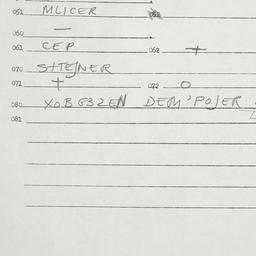 051 MLICER
060 —
061 CEP 062 +
070 STTEJNER
071 + 072 O
080 XOBG3ZEN DEM'POJER
081